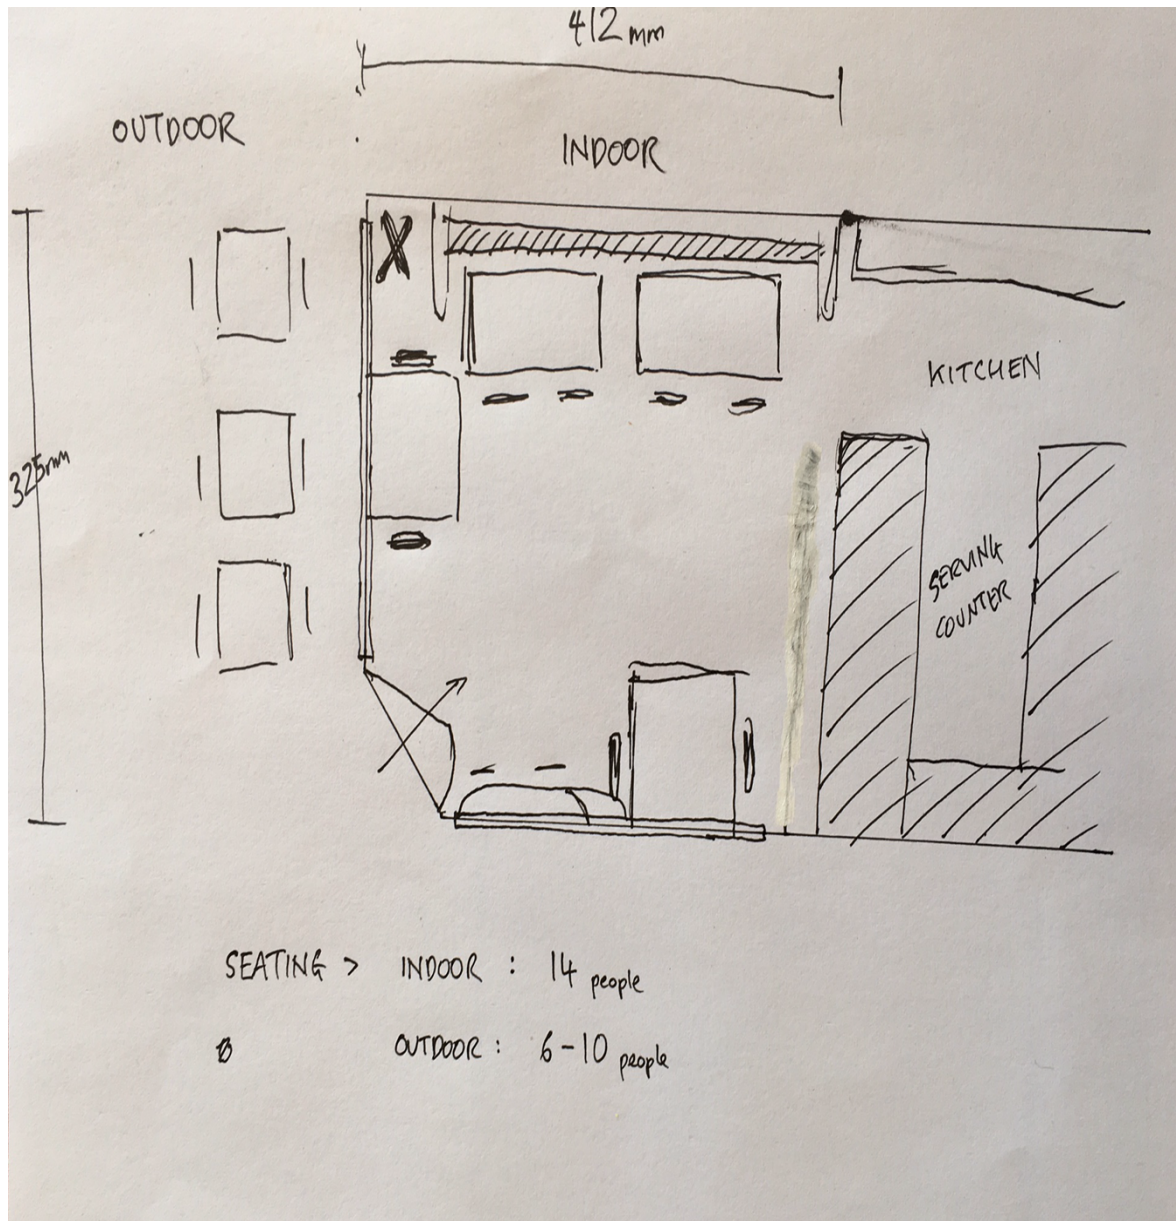 412 mm
OUTDOOR
INDOOR
KITCHEN
325mm
SERVING
COUNTER
SEATING > INDOOR : 14 people
OUTDOOR : 6-10 people